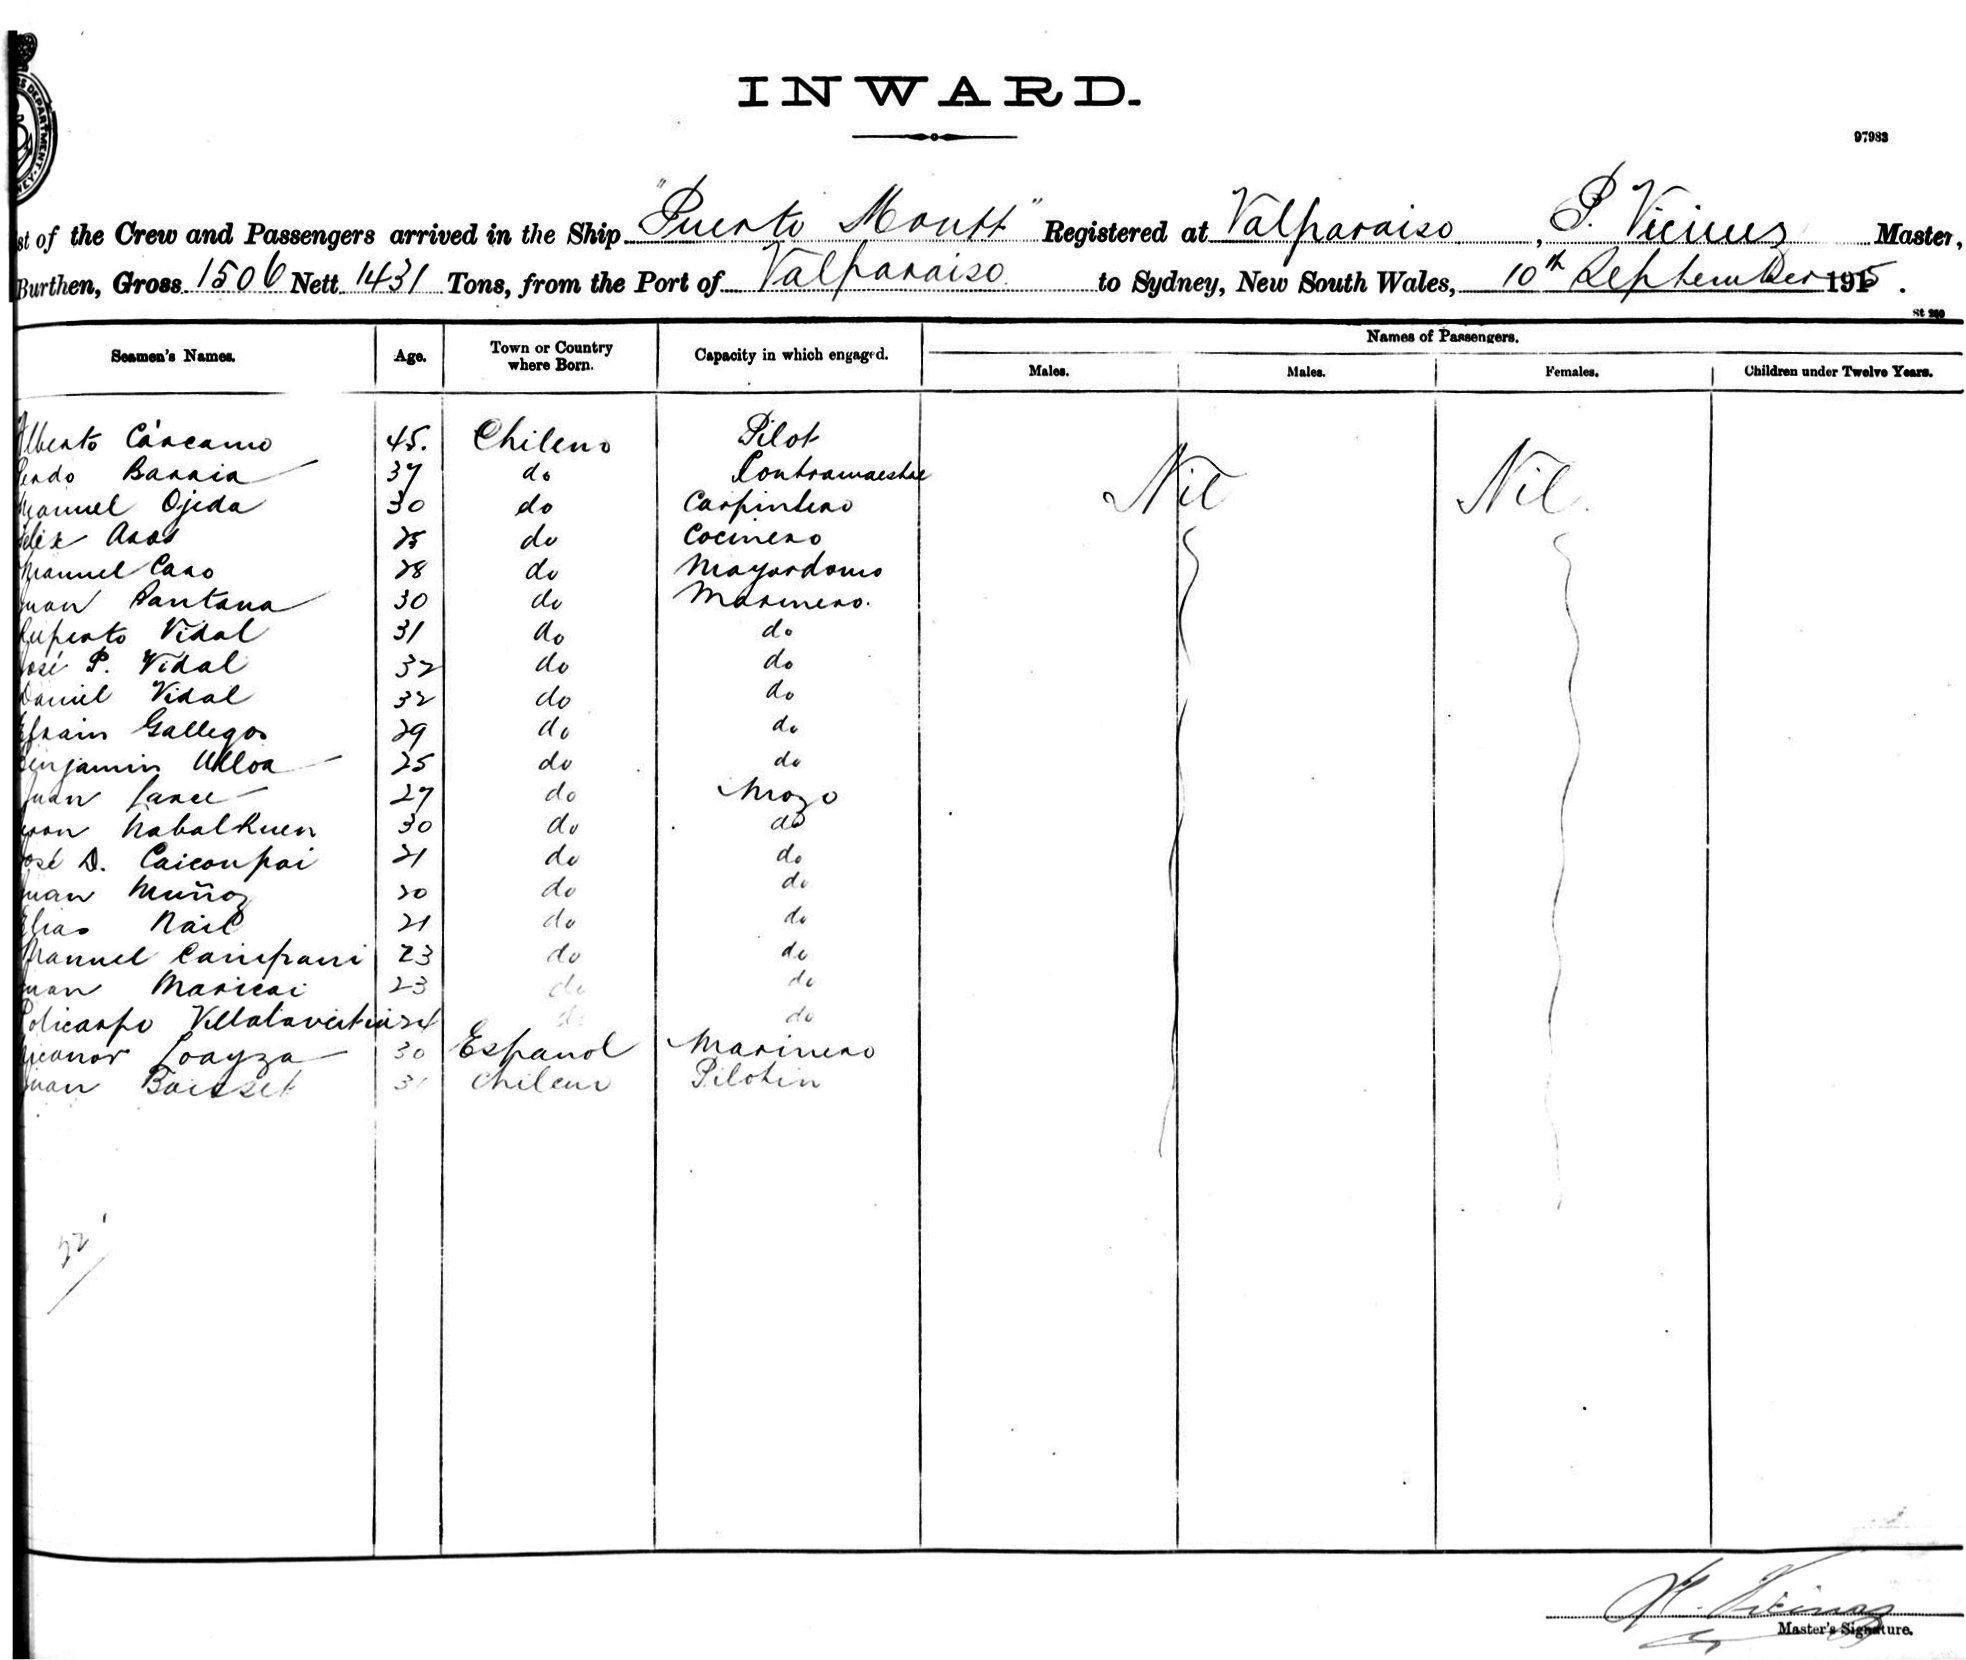 INWARD.
97983
S DEPARTMENT.
NEY.
st of the Crew and Passengers arrived in the Ship "Puerto Montt" Registered at Valparaiso, P. Vicius Master,
Burthen, Gross 1506 Nett 1431 Tons, from the Port of Valparaiso to Sydney, New South Wales, 10th September 1915.
St 260
Seamen's Names. Age. Town or Country where Born. Capacity in which engaged. Names of Passengers.
Males. Males. Females. Children under Twelve Years.
Alberto Cárcamo 45. Chileno Pilot
Barria 37 do Contramaestre
Manuel Ojeda 30 do Carpintero Nil Nil.
Felix Aros 25 do Cocinero
Manuel Caro 28 do Mayordomo
Juan Santana 30 do Marinero.
Ruperto Vidal 31 do do
José P. Vidal 32 do do
Daniel Vidal 32 do do
Efrain Gallegos 29 do do
Benjamin Ulloa 25 do do
Juan 27 do Mozo
Juan 30 do do
José D. Caicoupai 21 do do
Juan Muñoz 20 do do
Elias Nail 21 do do
Manuel 23 do do
Juan Maricai 23 do do
Policarpo 24 do do
Nicanor Loayza 30 Español Marinero
Juan Boisset 31 Chileno Pilotin
22
Master's Signature.